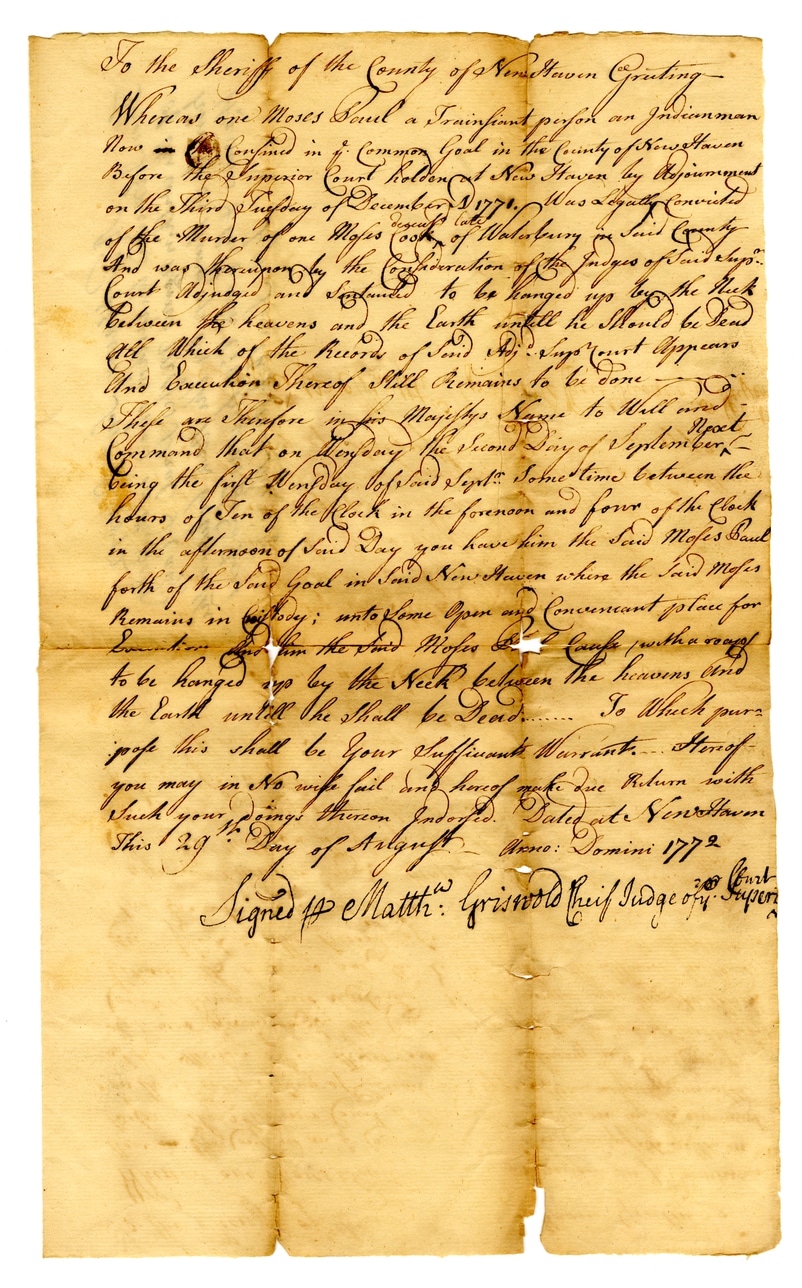 To the Sheriff of the County of New Haven Greeting
Whereas one Moses Paul a Trainsiant person an Indianman
Now in Confined in ye Common Goal in the County of New Haven
Before the Superior Court holden at New Haven by Adjournment
on the Third Tuesday of December AD 1771. Was Legally Convicted
of the Murder of one Moses Cook deceasd late of Waterbury in Said County
And was thereupon by the Consideration of the Judges of Said Supr
Court Adjudged and Sentanced to be hanged up by the Neck
between the heavens and the Earth untill he Should be Dead
All Which of the Records of Said Adjd Supr Court Appears
And Execution Thereof Still Remains to be done
These are Therefore in his Majestys Name to Will and
Command that on Winsday the Second Day of September Next
being the first Wensday of Said Septr Some time between the
hours of Ten of the Clock in the forenoon and four of the Clock
in the afternoon of Said Day you have him the Said Moses Paul
forth of the Said Goal in Said New Haven where the Said Moses
Remains in Custody; unto Some Open and Conveneant place for
Execution And him the Said Moses Paul Cause, with a roap
to be hanged up by the Neck between the heavens And
the Earth untill he Shall be Dead....... To Which pur=
pose this shall be Your Sufficuant Warrant.... Hereof
you may in No wise fail and hereof make due Return with
Such your doings thereon Indorsed. Dated at New Haven
This 29th Day of August - Anno: Domini 1772
Signed Matthw: Griswold Cheif Judge of ye Superr Court